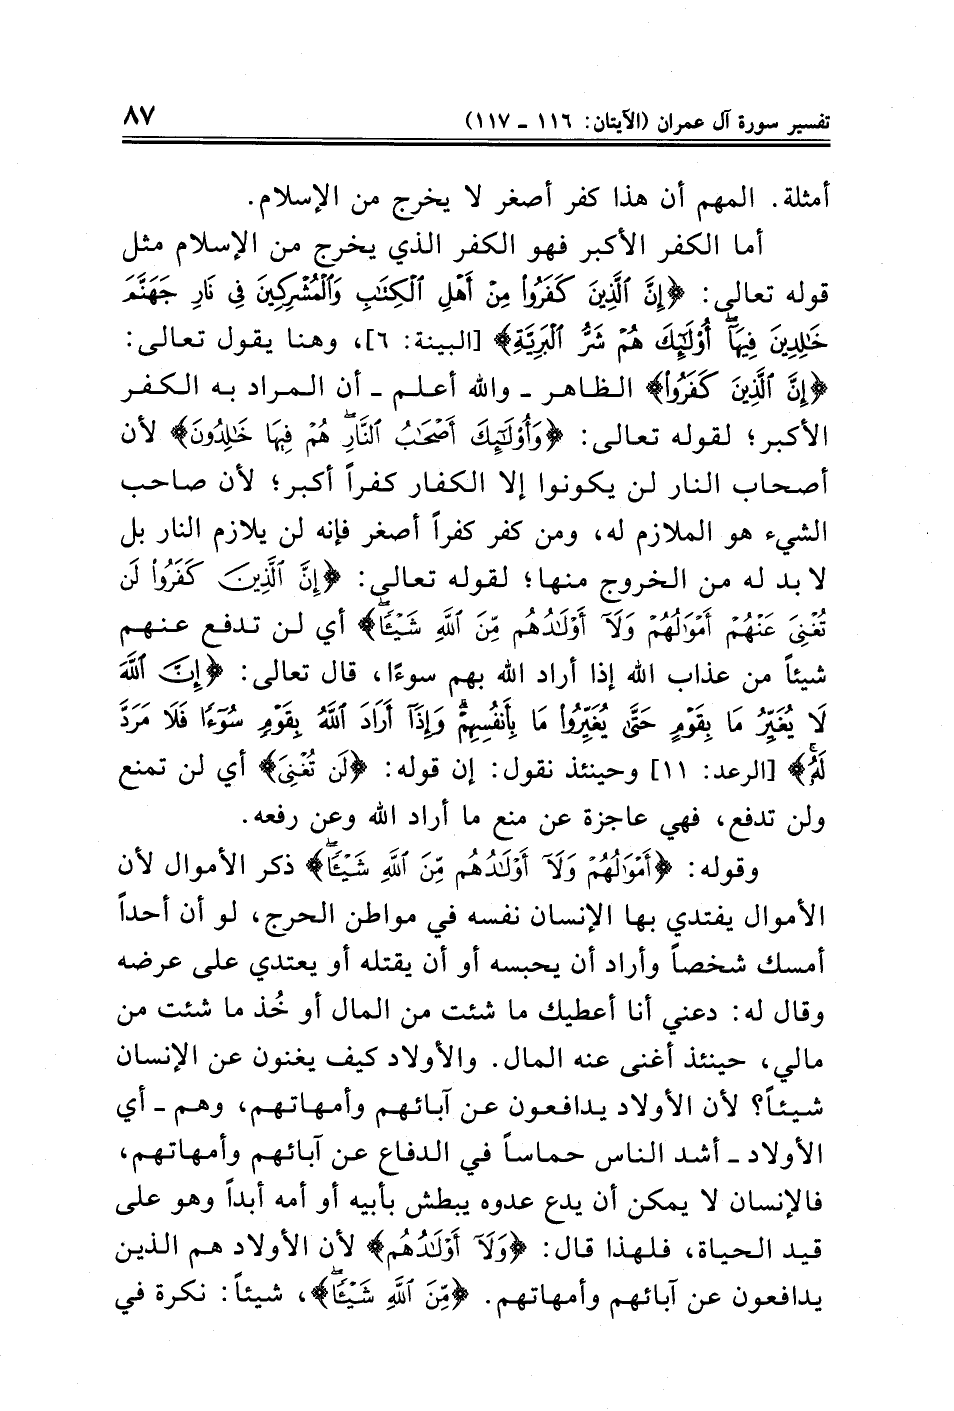 تفسير سورة آل عمران (الآيتان: ١١٦ - ١١٧) ٨٧
أمثلة. المهم أن هذا كفر أصغر لا يخرج من الإسلام.
أما الكفر الأكبر فهو الكفر الذي يخرج من الإسلام مثل
قوله تعالى: ﴿إِنَّ ٱلَّذِينَ كَفَرُوا۟ مِنْ أَهْلِ ٱلْكِتَٰبِ وَٱلْمُشْرِكِينَ فِى نَارِ جَهَنَّمَ
خَٰلِدِينَ فِيهَآ ۚ أُو۟لَٰٓئِكَ هُمْ شَرُّ ٱلْبَرِيَّةِ﴾ [البينة: ٦]، وهنا يقول تعالى:
﴿إِنَّ ٱلَّذِينَ كَفَرُوا۟﴾ الظاهر - والله أعلم - أن المراد به الكفر
الأكبر؛ لقوله تعالى: ﴿وَأُو۟لَٰٓئِكَ أَصْحَٰبُ ٱلنَّارِ ۖ هُمْ فِيهَا خَٰلِدُونَ﴾ لأن
أصحاب النار لن يكونوا إلا الكفار كفراً أكبر؛ لأن صاحب
الشيء هو الملازم له، ومن كفر كفراً أصغر فإنه لن يلازم النار بل
لا بد له من الخروج منها؛ لقوله تعالى: ﴿إِنَّ ٱلَّذِينَ كَفَرُوا۟ لَن
تُغْنِىَ عَنْهُمْ أَمْوَٰلُهُمْ وَلَآ أَوْلَٰدُهُم مِّنَ ٱللَّهِ شَيْـًٔا ۖ﴾ أي لن تدفع عنهم
شيئاً من عذاب الله إذا أراد الله بهم سوءًا، قال تعالى: ﴿إِنَّ ٱللَّهَ
لَا يُغَيِّرُ مَا بِقَوْمٍ حَتَّىٰ يُغَيِّرُوا۟ مَا بِأَنفُسِهِمْ ۗ وَإِذَآ أَرَادَ ٱللَّهُ بِقَوْمٍ سُوٓءًا فَلَا مَرَدَّ
لَهُۥ ۚ﴾ [الرعد: ١١] وحينئذ نقول: إن قوله: ﴿لَن تُغْنِىَ﴾ أي لن تمنع
ولن تدفع، فهي عاجزة عن منع ما أراد الله وعن رفعه.
وقوله: ﴿أَمْوَٰلُهُمْ وَلَآ أَوْلَٰدُهُم مِّنَ ٱللَّهِ شَيْـًٔا ۖ﴾ ذكر الأموال لأن
الأموال يفتدي بها الإنسان نفسه في مواطن الحرج، لو أن أحداً
أمسك شخصاً وأراد أن يحبسه أو أن يقتله أو يعتدي على عرضه
وقال له: دعني أنا أعطيك ما شئت من المال أو خُذ ما شئت من
مالي، حينئذ أغنى عنه المال. والأولاد كيف يغنون عن الإنسان
شيئاً؟ لأن الأولاد يدافعون عن آبائهم وأمهاتهم، وهم - أي
الأولاد - أشد الناس حماساً في الدفاع عن آبائهم وأمهاتهم،
فالإنسان لا يمكن أن يدع عدوه يبطش بأبيه أو أمه أبداً وهو على
قيد الحياة، فلهذا قال: ﴿وَلَآ أَوْلَٰدُهُم﴾ لأن الأولاد هم الذين
يدافعون عن آبائهم وأمهاتهم. ﴿مِّنَ ٱللَّهِ شَيْـًٔا ۖ﴾، شيئاً: نكرة في